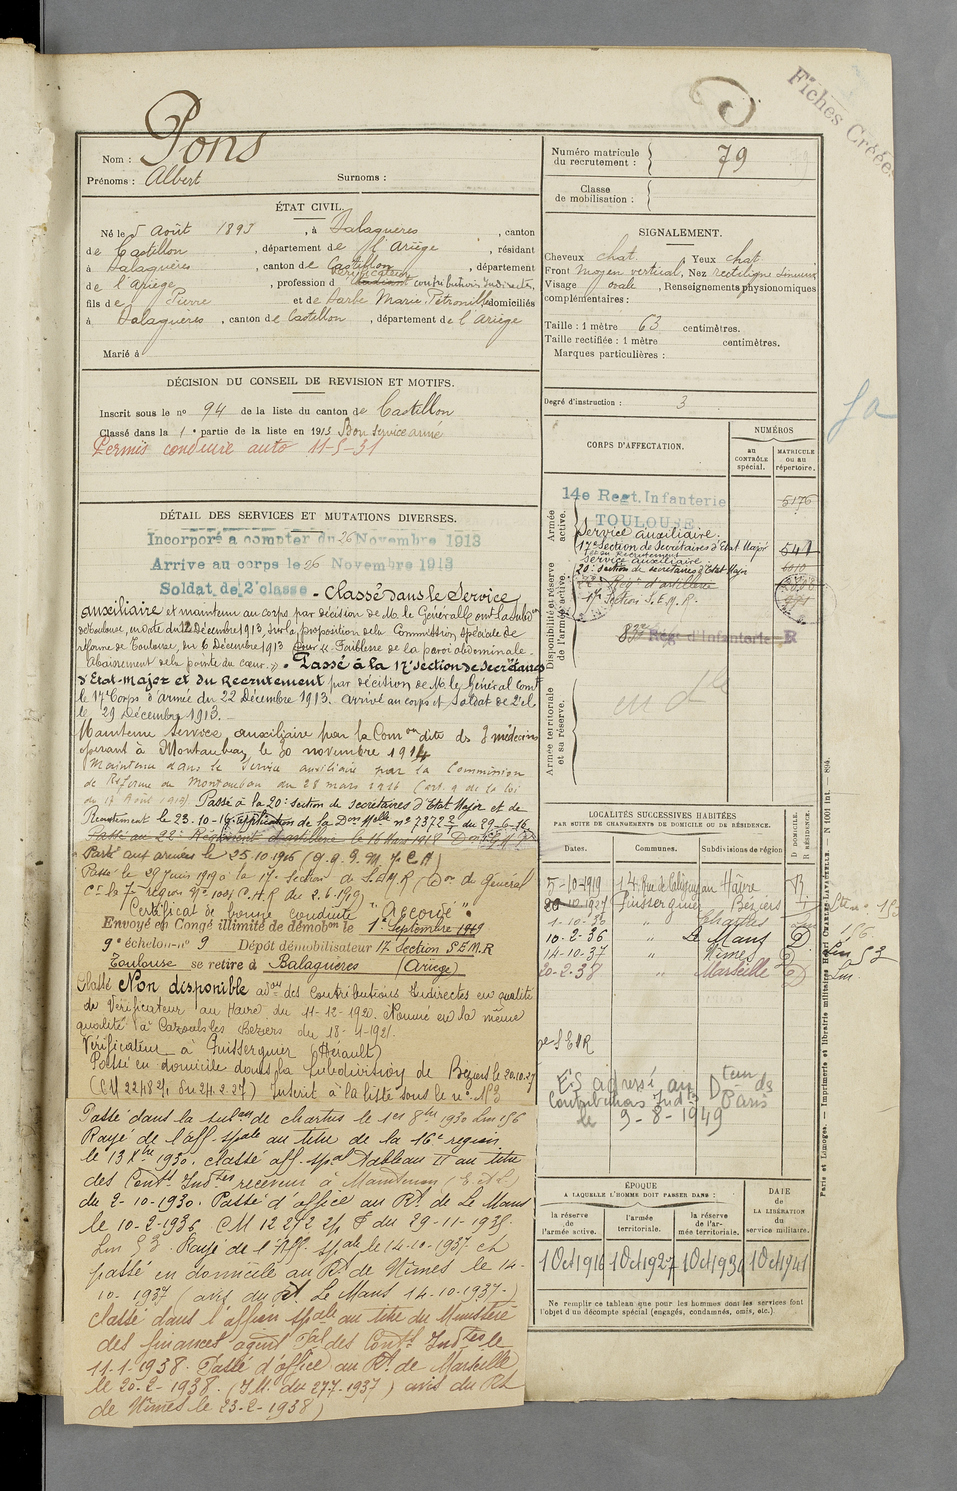 Fiches Créées
Nom : Pons
Prénoms : Albert Surnoms :
Numéro matricule du recrutement : 79
Classe de mobilisation :
ÉTAT CIVIL.
Né le 5 Août 1893, à Balaguères, canton
de Castillon, département de l'Ariège, résidant
à Balaguères, canton de Castillon, département
de l'Ariège, profession d Vérificateur contributions Indirectes,
fils de Pierre et de Barbe Marie Pétronille domiciliés
à Balaguères, canton de Castillon, département de l'Ariège
Marié à
SIGNALEMENT.
Cheveux chat. Yeux chat
Front moyen vertical, Nez rectiligne sinueux
Visage ovale, Renseignements physionomiques
complémentaires :
Taille : 1 mètre 63 centimètres.
Taille rectifiée : 1 mètre centimètres.
Marques particulières :
Degré d'instruction : 3
DÉCISION DU CONSEIL DE REVISION ET MOTIFS.
Inscrit sous le nº 94 de la liste du canton de Castillon
Classé dans la 1e partie de la liste en 1913 Bon service armé
Permis conduire auto 11-5-31
DÉTAIL DES SERVICES ET MUTATIONS DIVERSES.
Incorporé à compter du 26 Novembre 1913
Arrivé au corps le 26 Novembre 1913
Soldat de 2e classe - Classé dans le Service
auxiliaire et maintenu au corps par décision de M. le Général
de Toulouse, en date du 12 Décembre 1913, sur la proposition de la Commission spéciale de
réforme de Toulouse, du 6 Décembre 1913 pour "Faiblesse de la paroi abdominale.
Abaissement de la pointe du cœur." Passé à la 17e Section de Secrétaires
d'Etat-Major et du Recrutement par décision de M. le Général Comt
le 17e Corps d'armée du 22 Décembre 1913. Arrivé au corps et Soldat de 2e cl
le 29 Décembre 1913.
Maintenu service auxiliaire par la Comon dite des 3 médecins
opérant à Montauban le 30 novembre 1914
Maintenu dans le Service auxiliaire par la Commission
de Réforme de Montauban du 28 mars 1916 (art. 9 de la loi
du 17 Août 1915) Passé à la 20e section de secrétaires d'Etat Major et de
Recrutement le 23-10-16 application de la Don Melle nº 7372 du 29-6-16
Passé au 22e Régiment d'artillerie le 16 Mars 1918
Parti aux armées le 25.10.1916
Passé le 28 Juin 1919 à la 17e Section de S.E.M.R (Don du Général
Ct la 7e région du 2.6.1919)
Certificat de bonne conduite "Accordé"
Envoyé en Congé illimité de démobon le 1er Septembre 1919
9e échelon nº 9 Dépôt démobilisateur 17 Section S.E.M.R
Toulouse se retire à Balaguères (Ariège)
Classé Non disponible des Contributions Indirectes en qualité
de Vérificateur au Havre du 11-12-1920. Nommé en la même
qualité à Cazouls les Beziers du 18-4-1921.
Vérificateur à Puisserguier (Hérault)
Passé en domicile dans la Subdivision de Béziers le 20.10.27
Inscrit à la liste sous le nº 153
Passé dans la subon de Chartres le 1er 8bre 1930
Rayé de l'aff. spale au titre de la 16e région
le 13 Xbre 1930. Classé aff. spal Tableau II au titre
des Contns Indtes receveur à Maintenon (E. et L.)
du 2-10-1930. Passé d'office au Rt de Le Mans
le 10-2-1936 du 29-11-1935.
Lm 53. Rayé de l'Aff. spale le 14-10-1937 et
passé en domicile au Rt de Nîmes le 14-
10-1937 (avis du Rt Le Mans 14-10-1937-)
Classé dans l'affon spale au titre du Ministère
des finances agent Pal des Conts Indtes le
11-1-1938. Passé d'office au Rt de Marseille
le 20-2-1938. (I.M. du 27-7-1937) avis du Rt
de Nîmes le 23-2-1938)
CORPS D'AFFECTATION.
NUMÉROS
au CONTRÔLE spécial.
MATRICULE ou au répertoire.
Armée active.
14e Regt. Infanterie 5176
TOULOUSE.
Service auxiliaire.
17e Section de Secrétaires d'Etat Major 541
Service auxiliaire
20e Section de secrétaires d'Etat Major
Disponibilité et réserve de l'armée active.
22e Regt d'artillerie
17e Section S.E.M.R.
Regt d'Infanterie R
Armée territoriale et sa réserve.
LOCALITÉS SUCCESSIVES HABITÉES
PAR SUITE DE CHANGEMENTS DE DOMICILE OU DE RÉSIDENCE.
Dates. Communes. Subdivisions de région D. DOMICILE. R. RÉSIDENCE.
5-10-1919 14 Rue de Caligny au Hâvre R
20-10-1927 Puisserguier Béziers
1-10-30 " Chartres
10-2-36 " Le Mans D
14-10-37 " Nîmes D
20-2-38 " Marseille D
E.S adressé au Dteur des
Contributions Indtes Paris
le 9-8-1949
ÉPOQUE
A LAQUELLE L'HOMME DOIT PASSER DANS :
DATE DE LA LIBÉRATION du service militaire.
la réserve de l'armée active. l'armée territoriale. la réserve de l'armée territoriale.
1 Oct 1916 1 Oct 1927 1 Oct 1934 1 Oct 1941
Ne remplir ce tableau que pour les hommes dont les services font
l'objet d'un décompte spécial (engagés, condamnés, omis, etc.)
Paris et Limoges. — Imprimerie et librairie militaires Henri CHARLES-LAVAUZELLE. — N 1001 int. — 894.